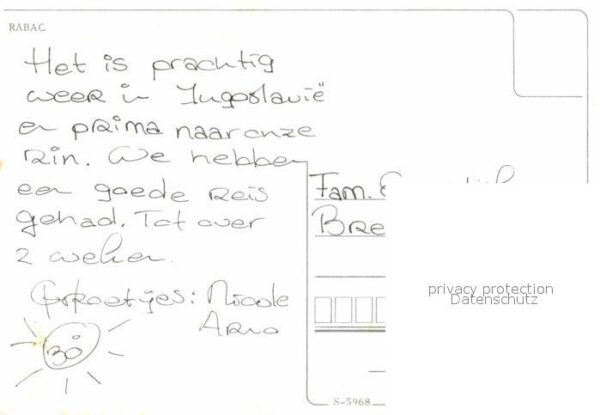 RABAC
Het is prachtig
weer in Jugoslavië
en prima naar onze
zin. We hebben
een goede reis
gehad. Tot over
2 weken.
Groetjes: Nicole
Arno
30°
Fam.
BRE
privacy protection
Datenschutz
S-5968